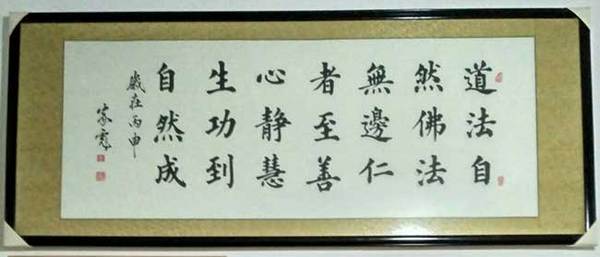 道法自
然佛法
無邊仁
者至善
心静慧
生功到
自然成
歲在丙申